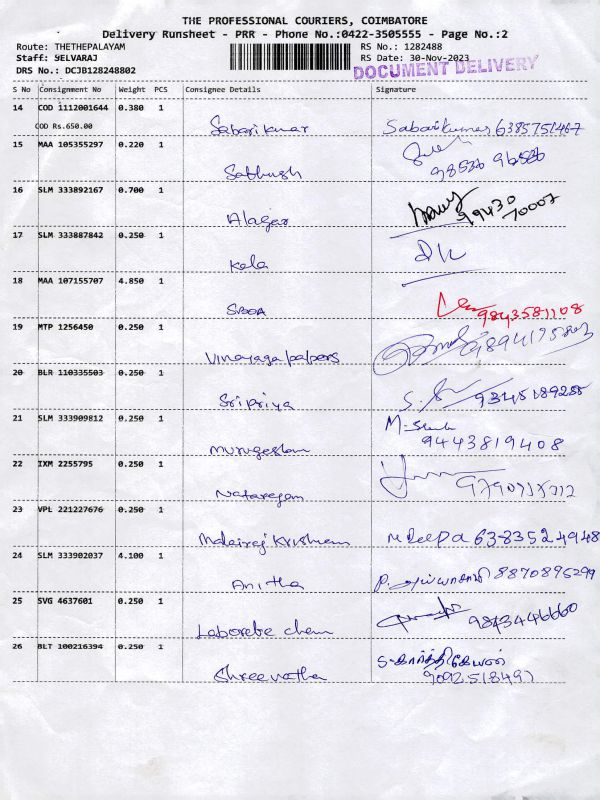 THE PROFESSIONAL COURIERS, COIMBATORE
Delivery Runsheet - PRR - Phone No.:0422-3505555 - Page No.:2
Route: THETHEPALAYAM RS No.: 1282488
Staff: SELVARAJ RS Date: 30-Nov-2023
DRS No.: DCJB128248802 DOCUMENT DELIVERY
S No Consignment No Weight PCS Consignee Details Signature
14 COD 1112001644 0.380 1
COD Rs.650.00 Sabarikumar Sabarikumar 6385751467
15 MAA 105355297 0.220 1
Sathish
16 SLM 333892167 0.700 1
Alagar 99430 70007
17 SLM 333887842 0.250 1
Kala
18 MAA 107155707 4.850 1
SBOA 9843581108
19 MTP 1256450 0.250 1
Vinayaga papers
20 BLR 110335503 0.250 1
Sripriya
21 SLM 333909812 0.250 1
Murugesan 9443819408
22 IXM 2255795 0.250 1
Natarajan
23 VPL 221227676 0.250 1
Malairaj Krishnan M Deepa 6383524948
24 SLM 333902037 4.100 1
Anitha 8870895299
25 SVG 4637601 0.250 1
Laborebe chem 9843446660
26 BLT 100216394 0.250 1
Shreevatha S-கார்த்திகேயன்
9092518497